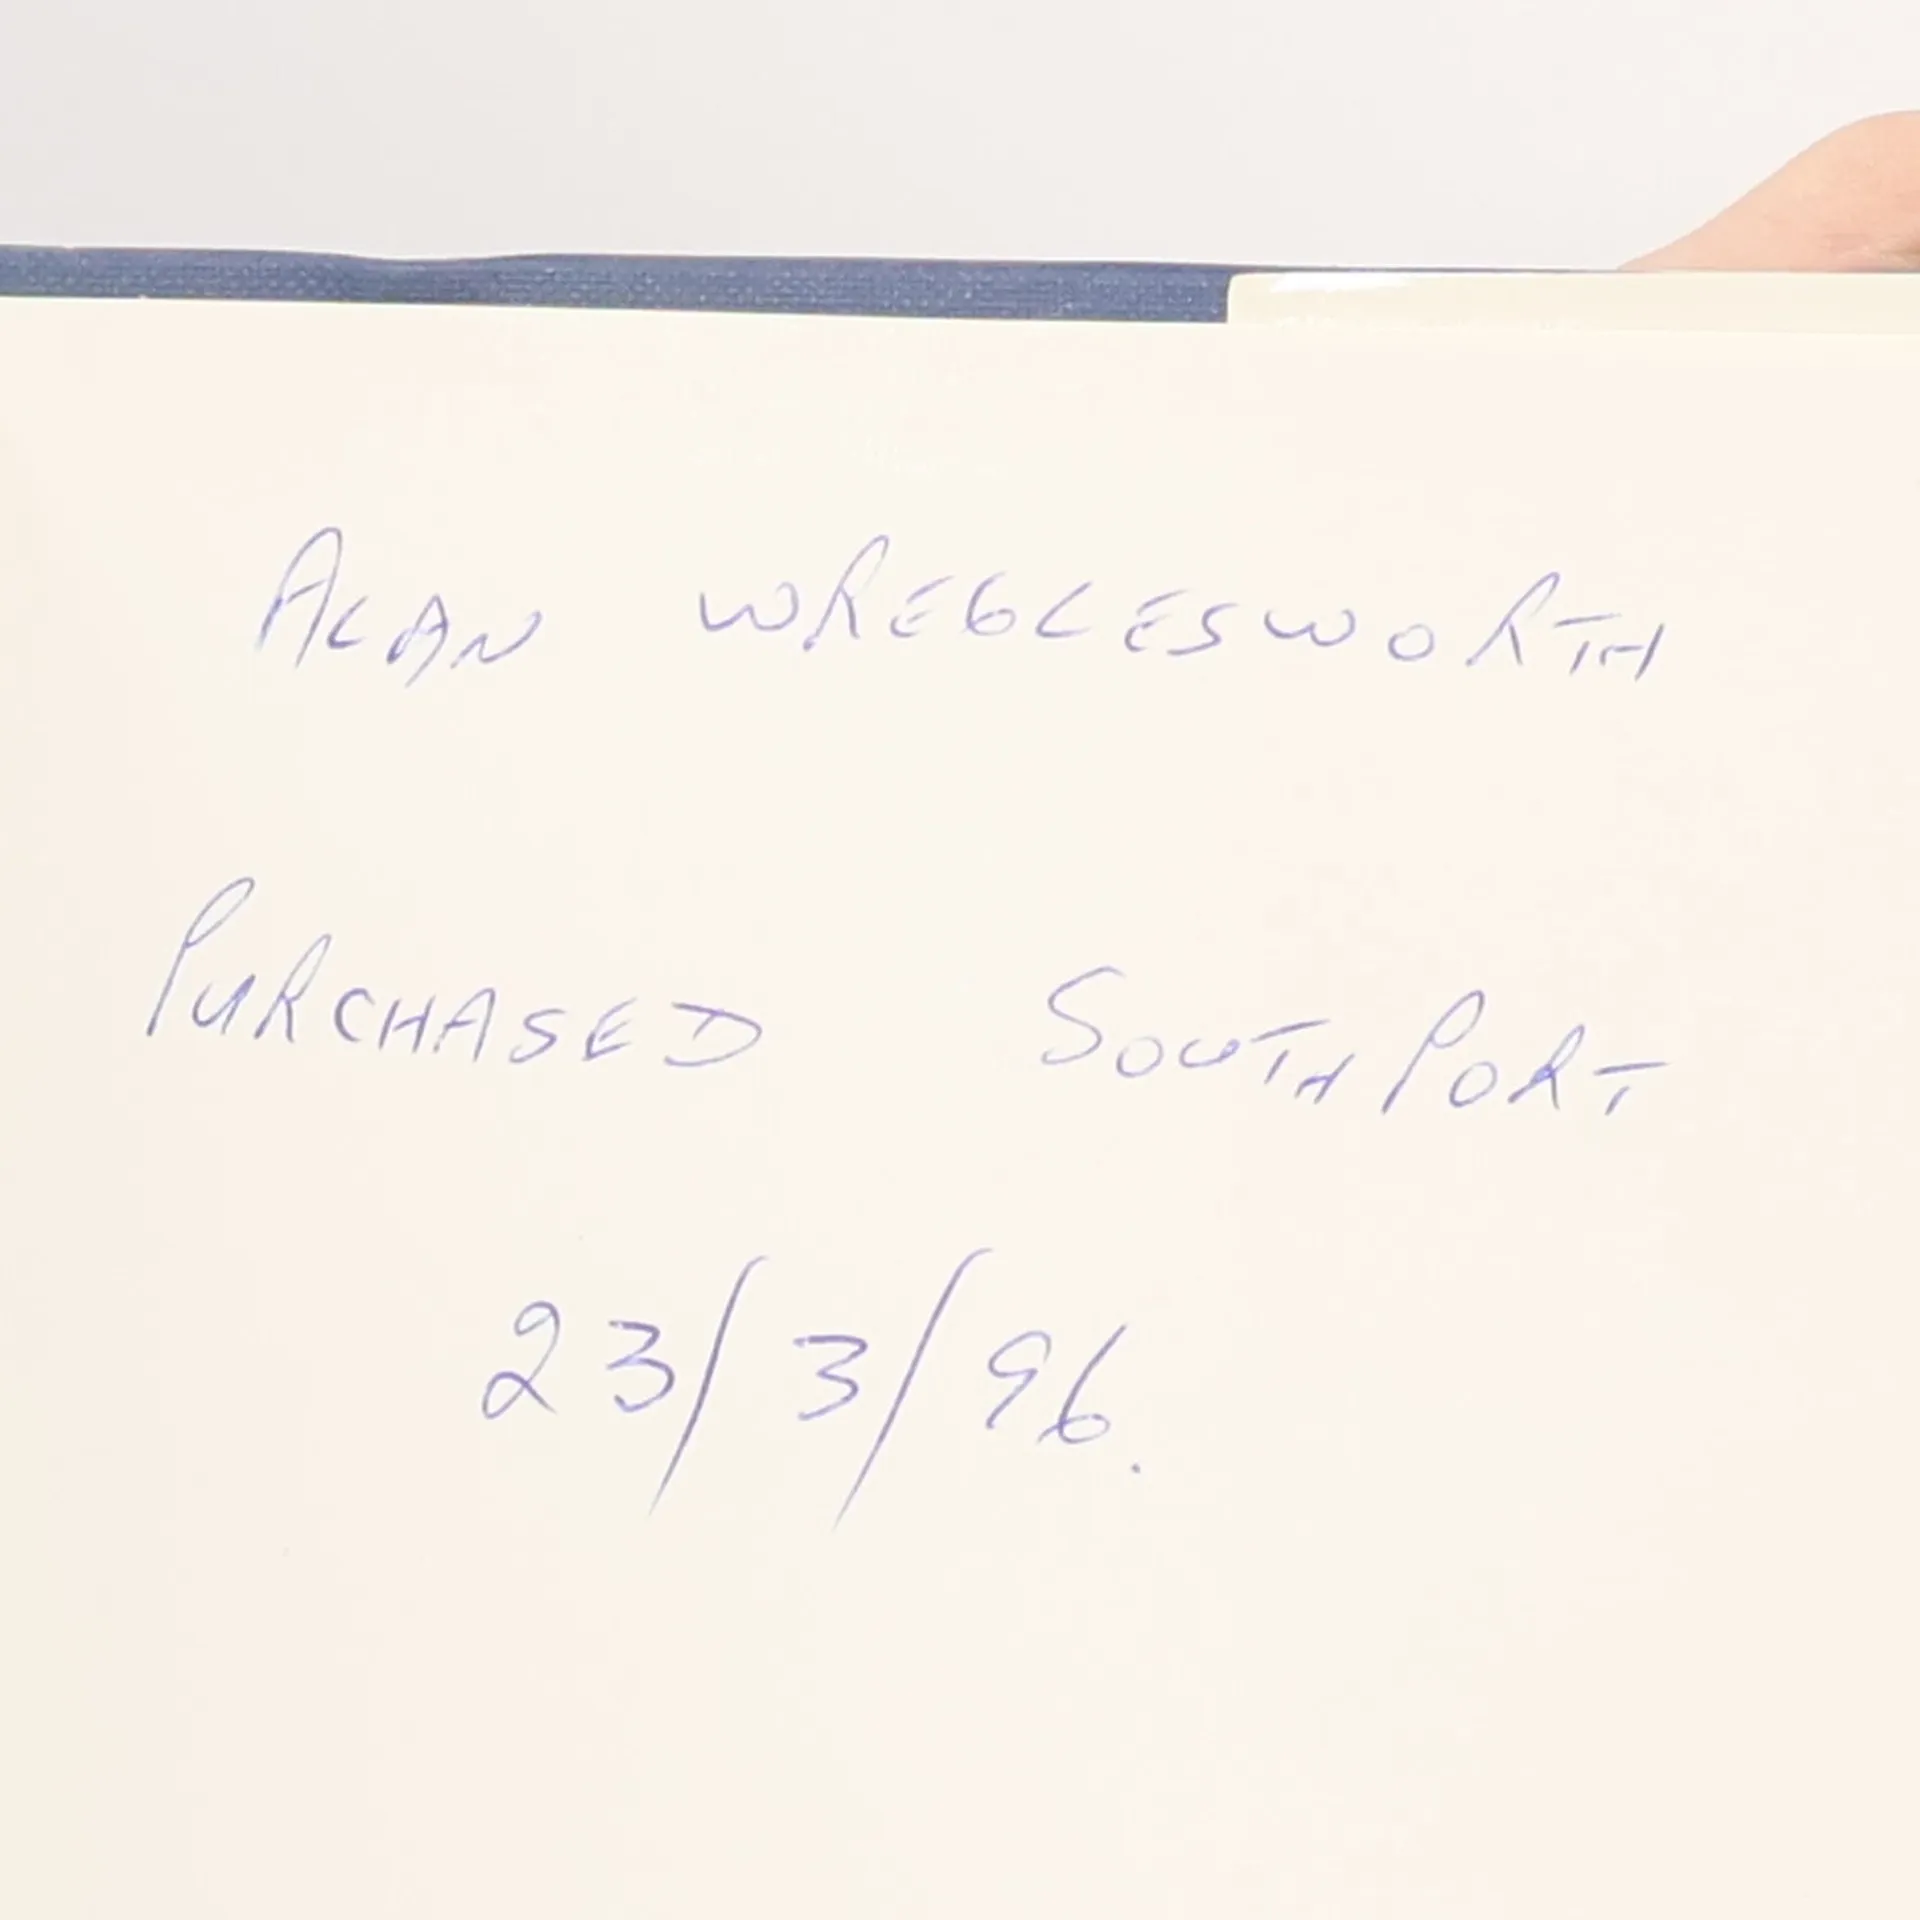 ALAN WREGLESWORTH
PURCHASED SOUTHPORT
23/3/96.